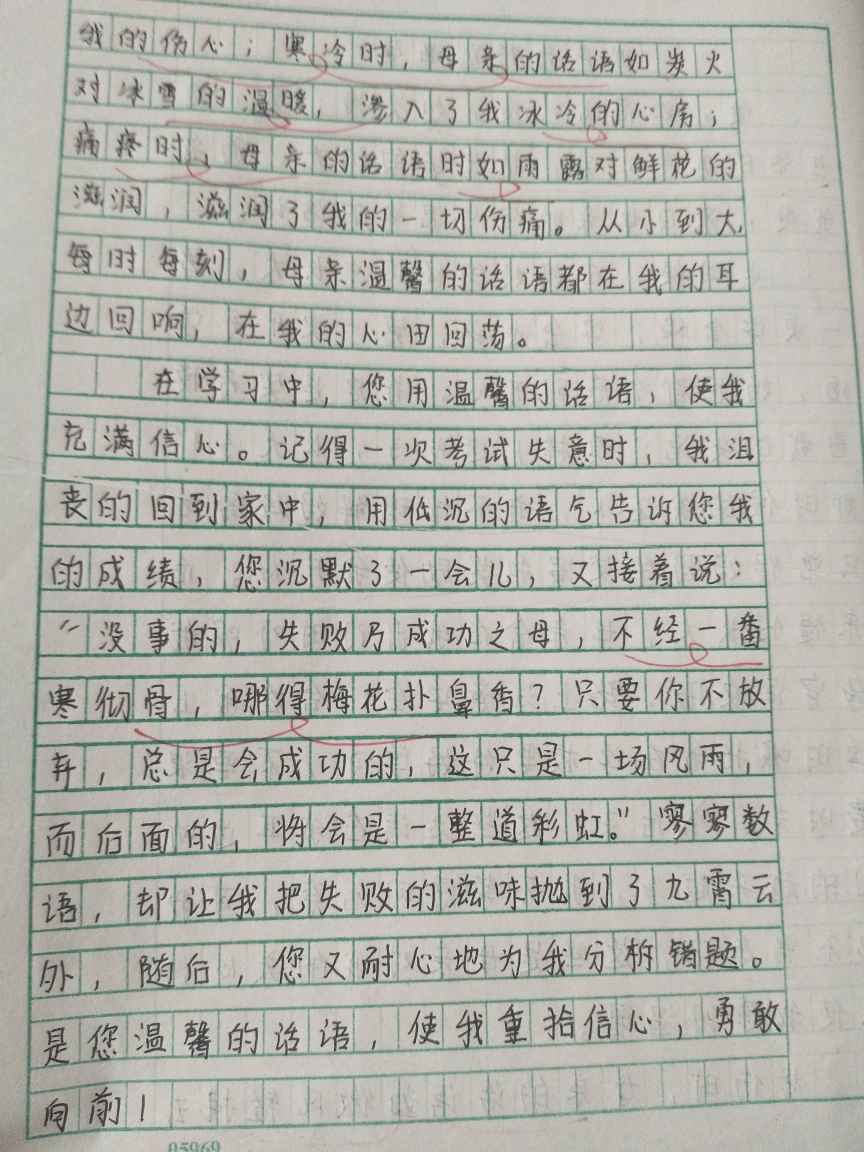 我的伤心；寒冷时，母亲的话语如炭火
对冰雪的温暖，渗入了我冰冷的心房；
痛疼时，母亲的话语时如雨露对鲜花的
滋润，滋润了我的一切伤痛。从小到大，
每时每刻，母亲温馨的话语都在我的耳
边回响，在我的心田回荡。
在学习中，您用温馨的话语，使我
充满信心。记得一次考试失意时，我沮
丧的回到家中，用低沉的语气告诉您我
的成绩，您沉默了一会儿，又接着说：
“没事的，失败乃成功之母，不经一番
寒彻骨，哪得梅花扑鼻香？只要你不放
弃，总是会成功的，这只是一场风雨，
而后面的，将会是一整道彩虹。”寥寥数
语，却让我把失败的滋味抛到了九霄云
外，随后，您又耐心地为我分析错题。
是您温馨的话语，使我重拾信心，勇敢
向前！
05969